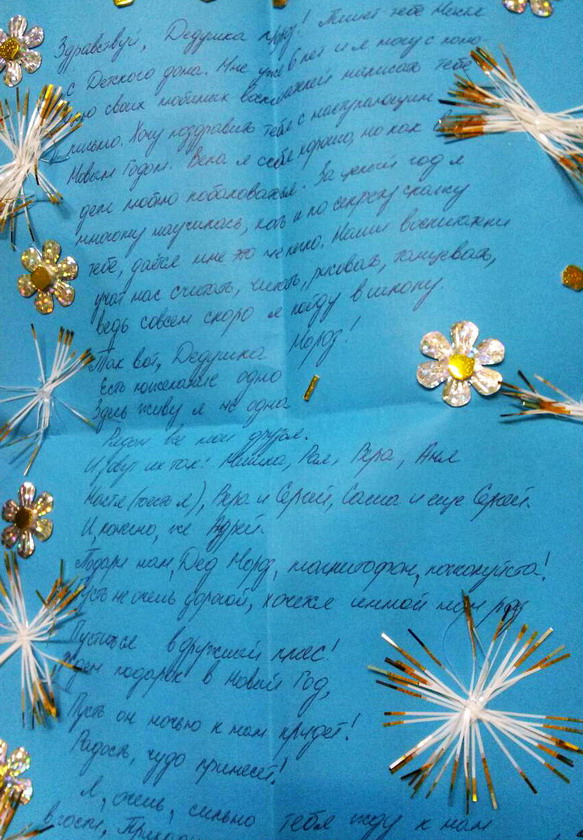 Здравствуй, Дедушка Мороз! Пишет тебе Настя
с Детского дома. Мне уже 6 лет и я могу с помо-
своих любимых написать тебе
письмо. Хочу поздравить тебя с наступающим
Новым Годом. Вела я себя хорошо, но как
дети люблю побаловаться. За целый год я
многому научилась, хоть и по секрету скажу
тебе, даётся мне это не легко. Наши
учат нас считать, читать, рисовать, танцевать,
ведь совсем скоро я пойду в школу.
Так вот, Дедушка Мороз!
Есть пожелание одно
Здесь живу я не одна
Рядом все мои друзья.
Зовут их так: Мишка, Рая, Вера, Аня
Настя (тоесть я), Вера и Сергей, Саша и еще Сергей.
И, конечно, же Андрей.
Подари нам, Дед Мороз, магнитофон, пожалуйста!
Пусть не очень дорогой, хочется зимой нам
Пуститься в дружный пляс!
Ждем подарок в Новый Год,
Пусть он ночью к нам придет!
Радость, чудо принесет!
Я, очень, сильно тебя жду к нам
в гости,